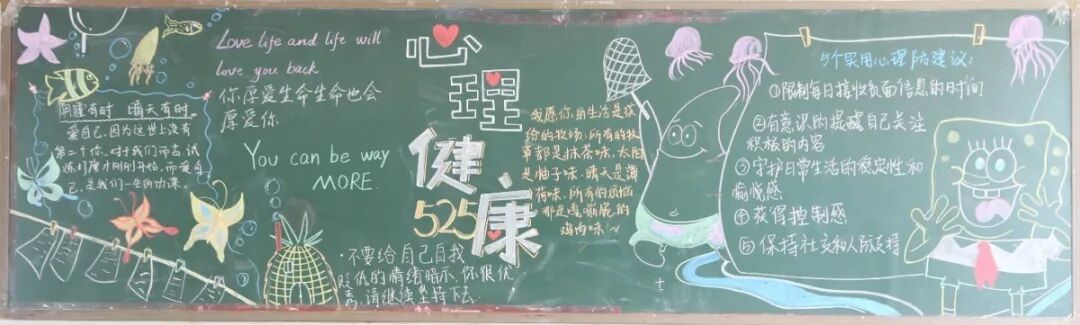 阴霾有时 晴天有时.
爱自己.因为这世上没有
第二个你.对于我们而言,试
炼打磨才刚刚开始,而爱自
己,是我们一生的功课.
Love life and life will
love you back
你厚爱生命生命也会
厚爱你
You can be way
MORE.
心理健康
525
·不要给自己自我
贬低的情绪暗示.你很优
秀,请继续坚持下去.
我愿你的生活是缤
纷的牧场,所有的牧
草都是抹茶味,太阳
是柚子味.晴天是薄
荷味.所有的烦恼
都是嘎嘣脆的
鸡肉味~
5个实用心理防疫建议:
①限制每日接收负面信息的时间
②有意识的提醒自己关注
积极的内容
③守护日常生活的稳定性和
愉悦感
④获得控制感
⑤保持社交和人际支持